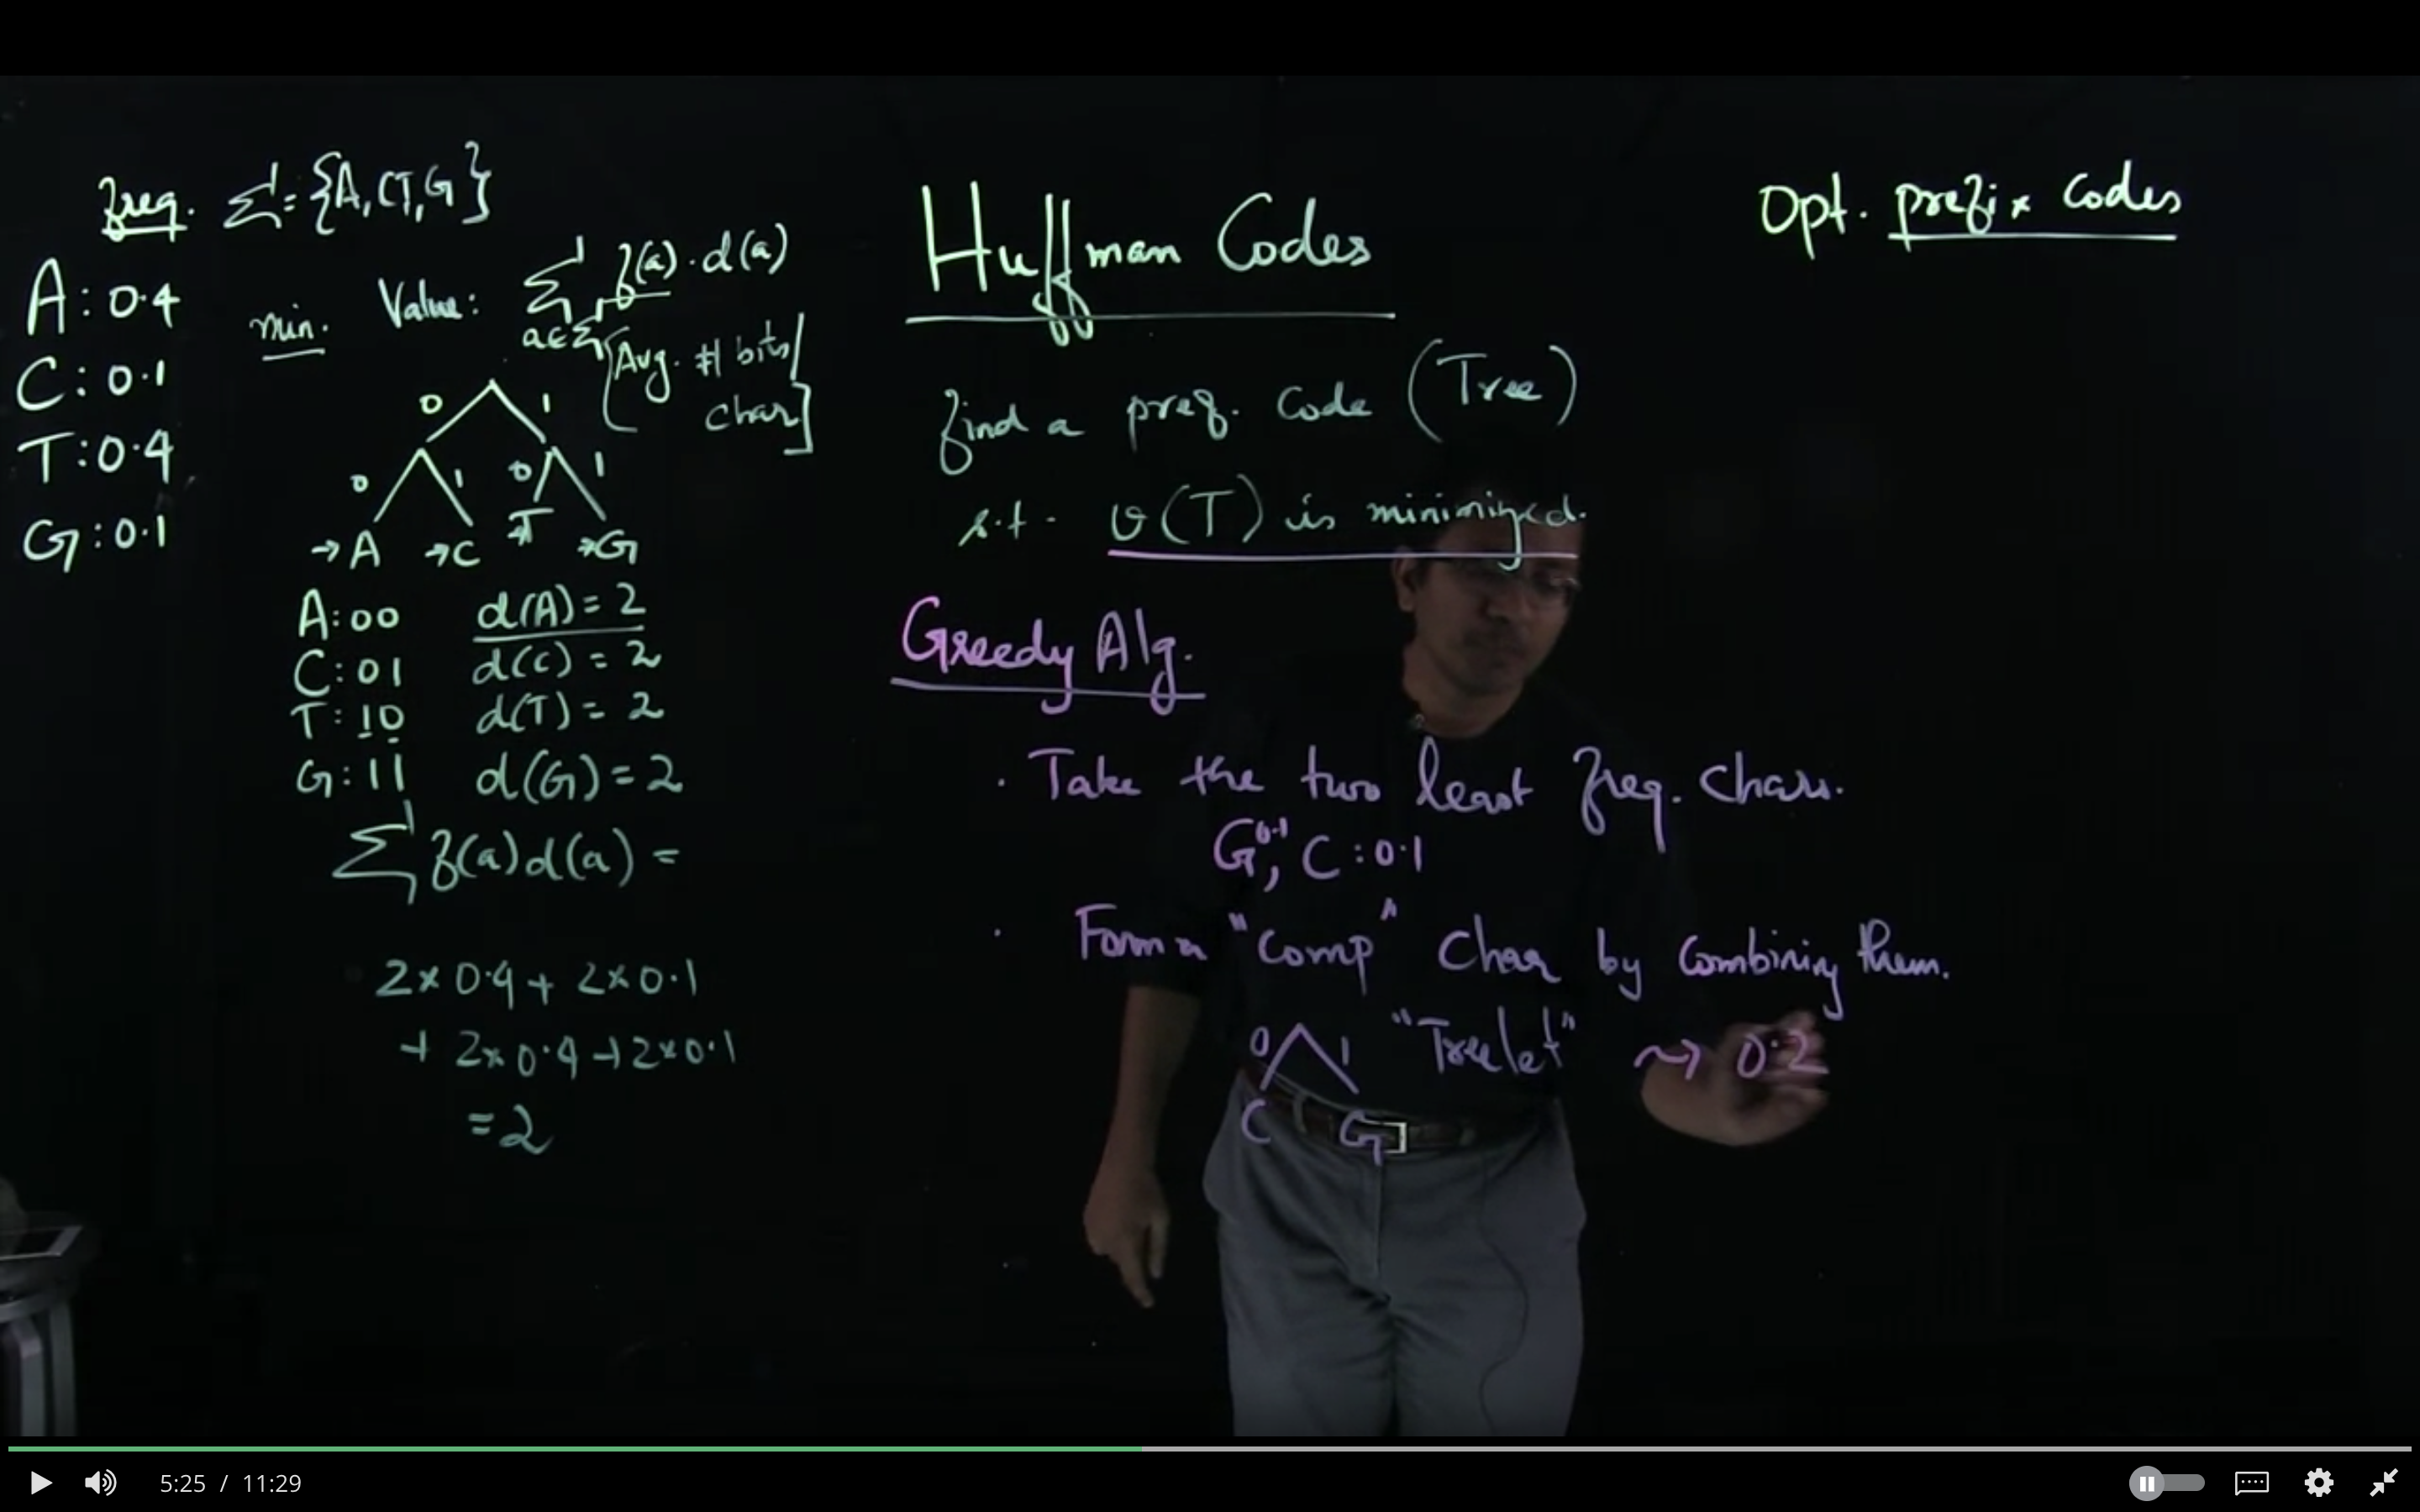 freq. Σ = {A, C T, G}
A : 0.4
C : 0.1
T : 0.4
G : 0.1
min. Value : Σ f(a) · d(a)
a ∈ Σ
[Avg. # bits/
char]
0 1
0 1 0 1
→ A → C → T → G
A : 00 d(A) = 2
C : 01 d(C) = 2
T : 10 d(T) = 2
G : 11 d(G) = 2
Σ f(a) d(a) =
2 × 0.4 + 2 × 0.1
+ 2 × 0.4 + 2 × 0.1
= 2
Huffman Codes
find a pref. code (Tree)
s.t. v(T) is minimized.
Greedy Alg.
· Take the two least freq. chars.
G 0.1, C : 0.1
· Form a "comp" char by combining them.
0 1 "Treelet" ⇝ 0.2
C G
Opt. prefix codes
5:25 / 11:29